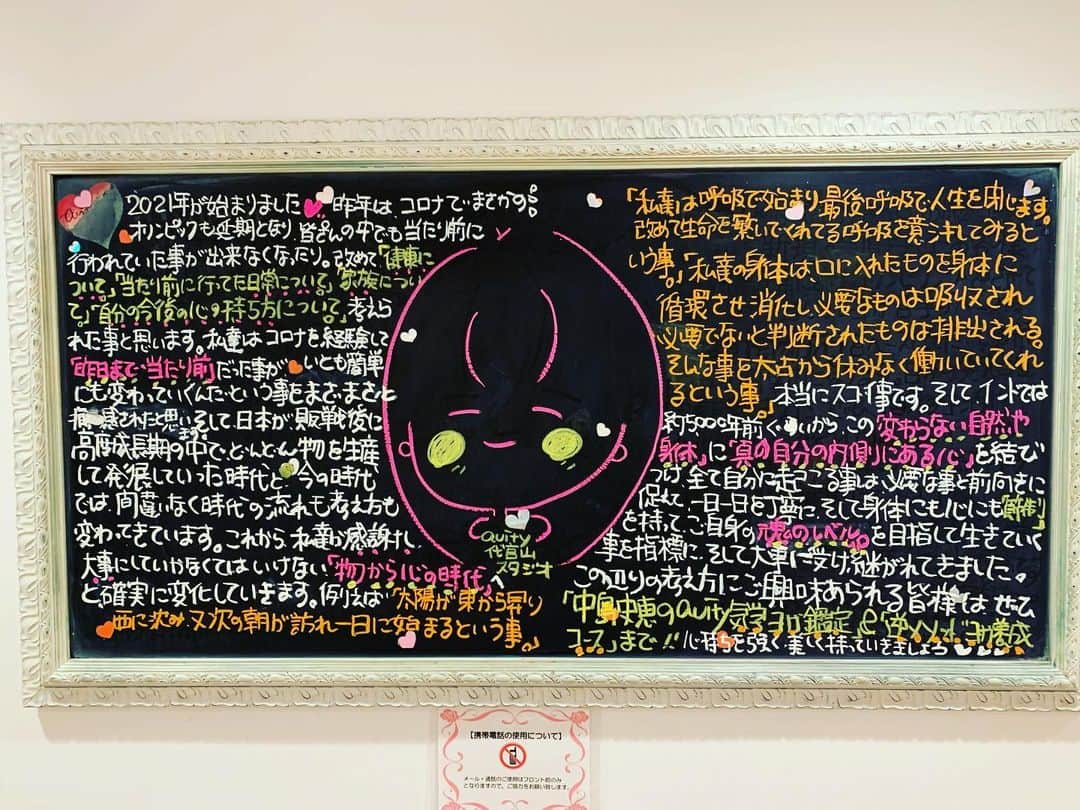 2021年が始まりました 昨年は、コロナでまさかの
オリンピックも延期となり、皆さんの中でも当たり前に
行われていた事が出来なくなったり。改めて「健康に
ついて」「当たり前に行ってた日常について」「家族につい
て」「自分の今後の心の持ち方について」考えら
れた事と思います。私達はコロナを経験して
「昨日まで当たり前」だった事が いとも簡単
にも変わっていくんだという事をまざまざと
痛感されたと思います。そして日本が敗戦後に
高度成長期の中で、どんどん物を生産
して発展していった時代と、今の時代
では、間違いなく時代の流れも考え方も
変わってきています。これから、私達が感謝し、
大事にしていかなくてはいけない「物から心の時代」へ
と、確実に変化していきます。例えば「太陽が東から昇り
西に沈み、又次の朝が訪れ一日に始まるという事。」
Quity
代官山
スタジオ
「私達は呼吸で始まり最後呼吸で人生を閉じます。
改めて生命を繋いでくれてる呼吸を意識してみると
いう事。」「私達の身体は口に入れたものを身体に
循環させ消化し必要なものは吸収され
必要でないと判断されたものは排出される。
そんな事を太古から休みなく働いていてくれ
るという事。」本当にスゴイ事です。そして、インドでは
約5000年前くらいから、この「変わらない自然や
身体」に「真の自分の内側にある心」を結び
つけ、全て自分に起こる事は必要な事と前向きに
捉えて、一日一日を丁寧に、そして身体にも心にも「節制」
を持って、ご自身の魂のレベルを目指して生きていく
事を指標に、そして大事に受け継がれてきました。
この辺りの考え方にご興味あられる皆様は、ぜひ
「中島史恵のQuity気学ヨガ鑑定」&
コース」まで!! 心持ちを強く美しく持っていきましょう
【携帯電話の使用について】
メール・通話のご使用はフロント前のみ
となりますので、ご協力をお願い致します。